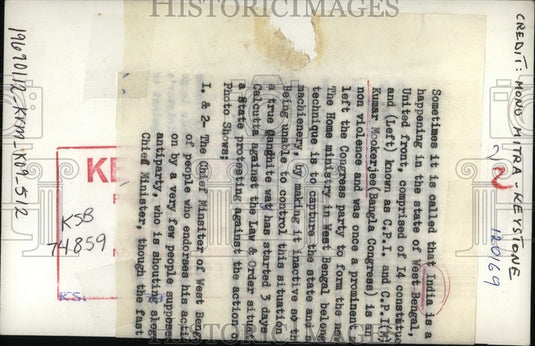 HISTORICIMAGES
CREDIT: MONO MITRA - KEYSTONE
120169
2
Sometimes it is called that India is a
happening in the state of West Bengal,
United front, comprised of 14 constatue
and (Left) known as C.P.I. and C.P.I(M)
Kumar Mookerjee(Bangla Congress) is an
non violence and was once a prominent
left the Congress party to form the ne
The Home ministry in West Bengal belon
technique is to capture the state and
machienery, by making it inactive so th
Being unable to control this situation
a true Ganghite wat has started 3 days
Calcutta against the Law & Order situat
a State protesting against the action o
Photo Shows;
1. & 2- The Chief Minsiter of West Ben
of people who endorses his acti
on by a very few people suppose
antiparty, who is shouting slog
Chief Minister, though the fast
KE
KSB
74859
KS.
19690112-KRM-K19-512
HISTORICIMAGES